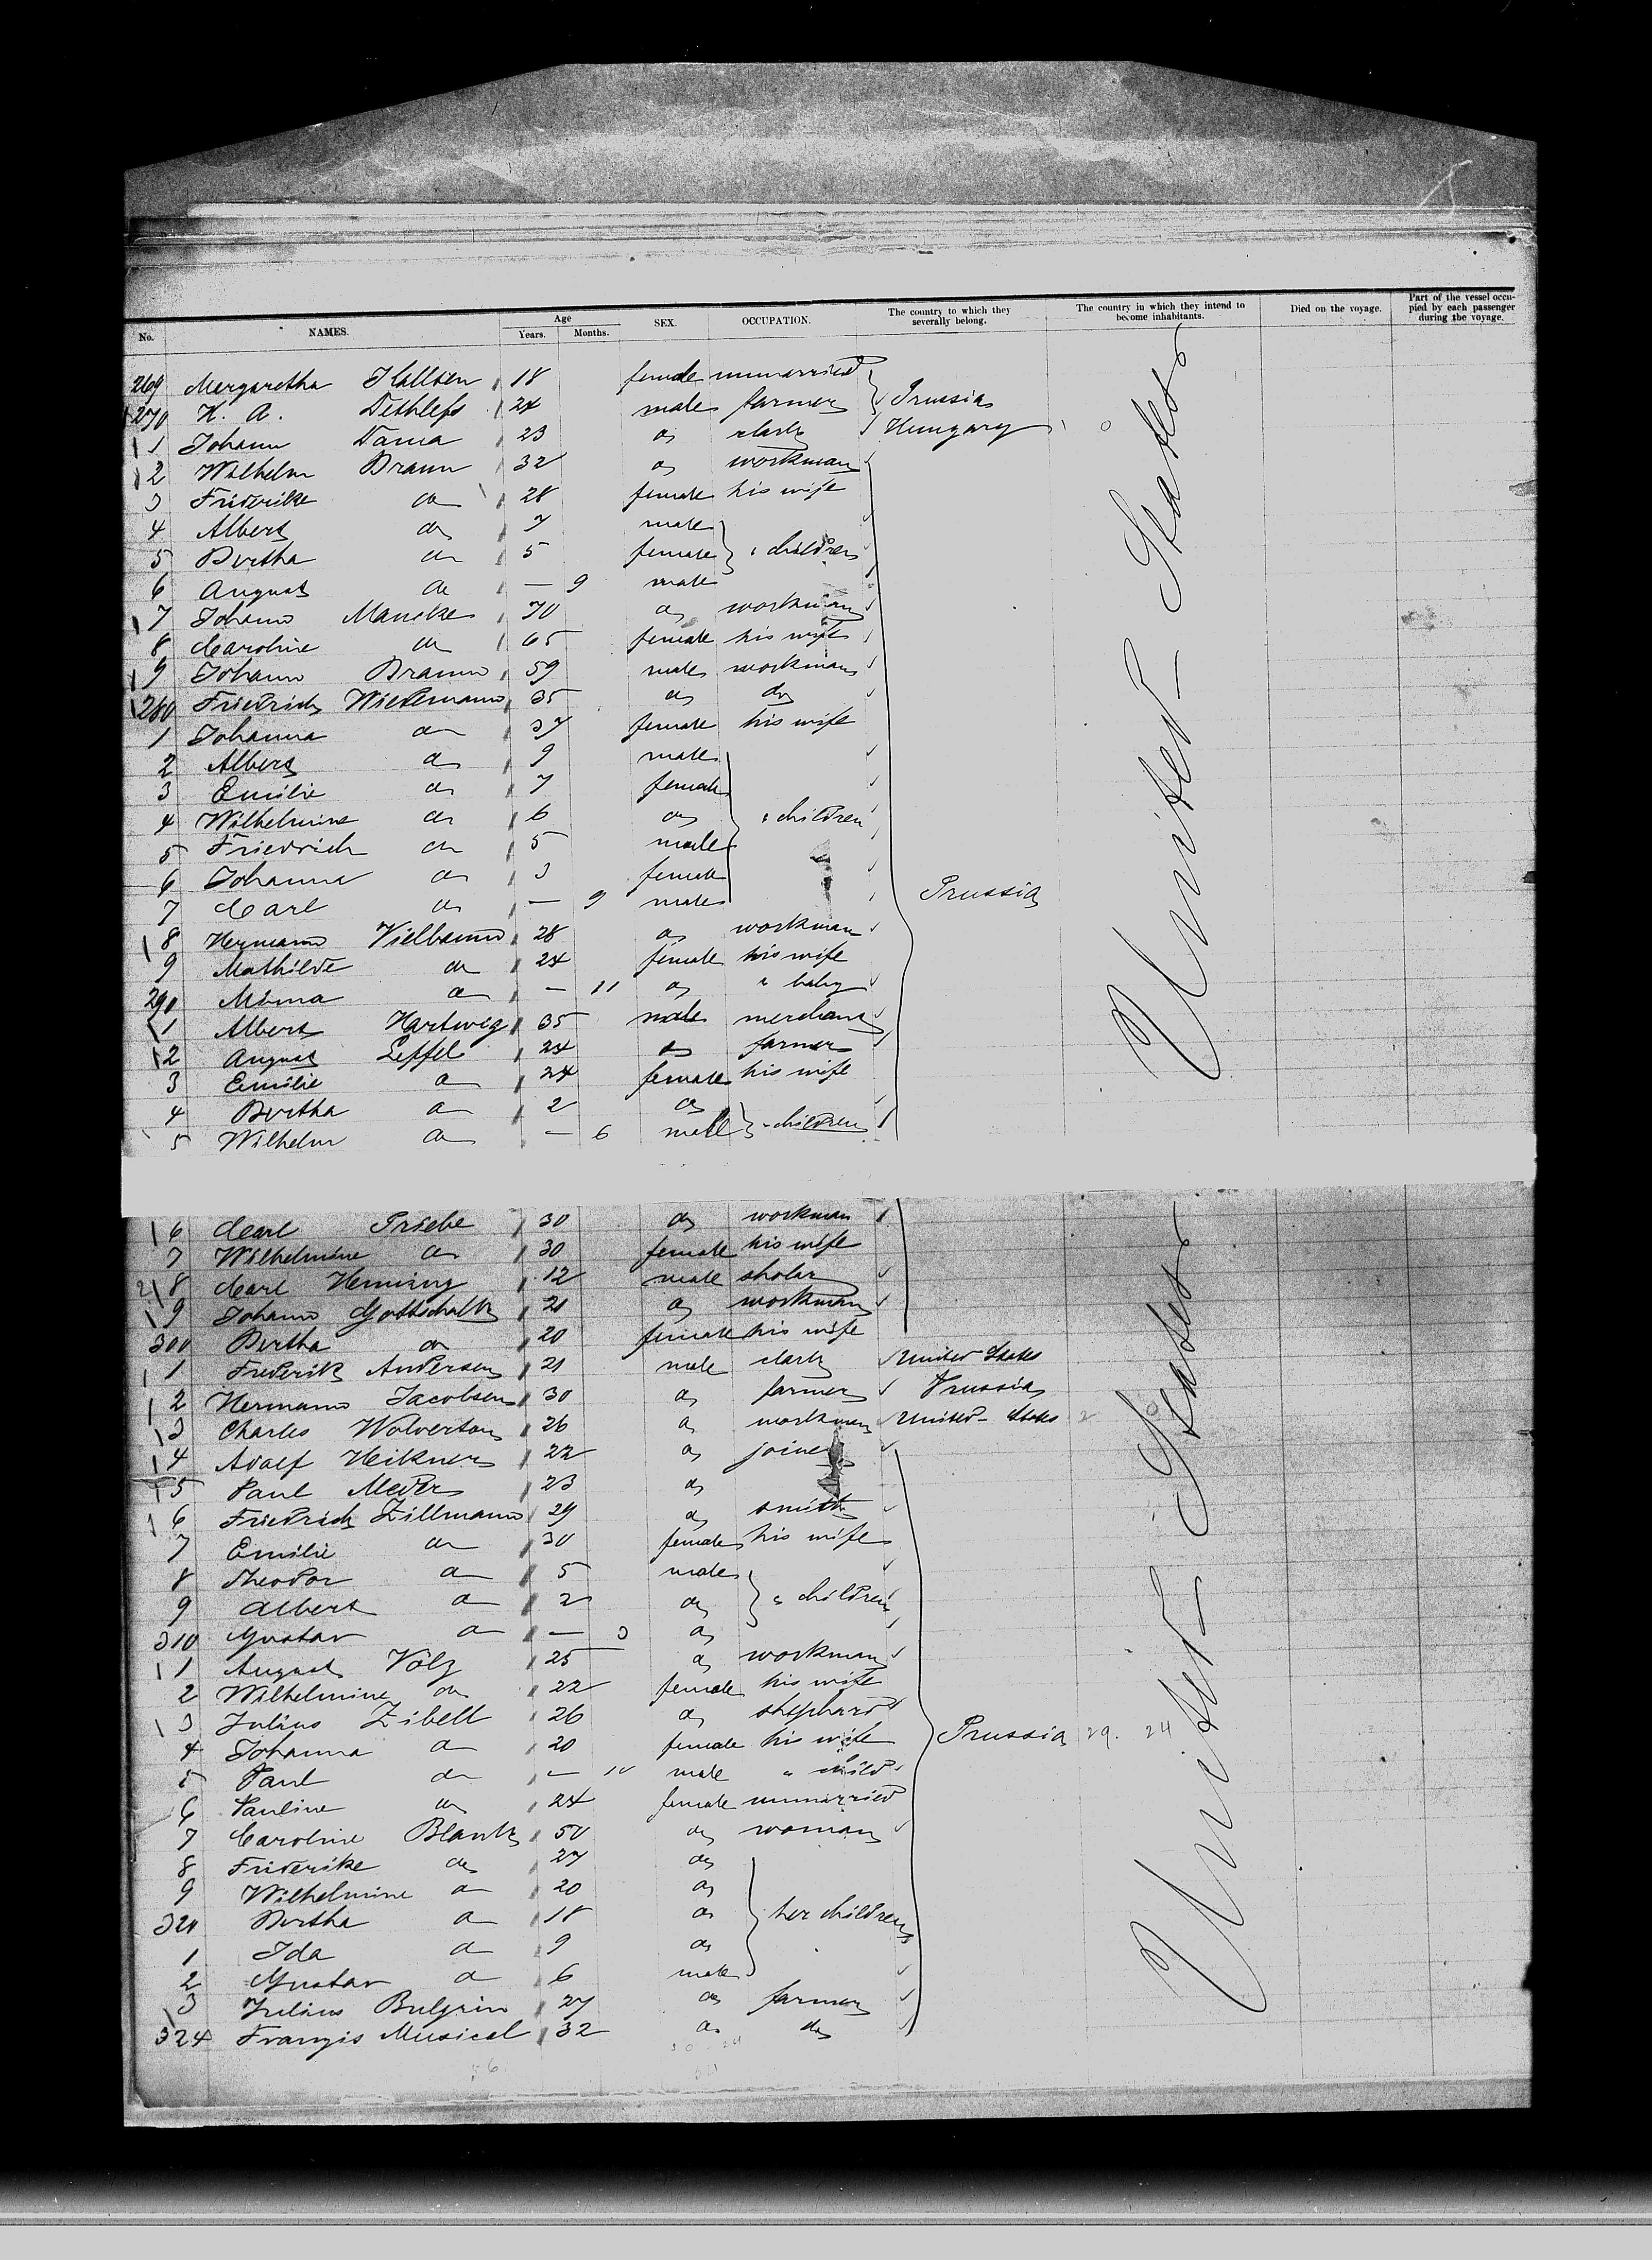 No. NAMES. Age Years. Months. SEX. OCCUPATION. The country to which they severally belong. The country in which they intend to become inhabitants. Died on the voyage. Part of the vessel occupied by each passenger during the voyage.
269 Margaretha 18 female unmarried
270 H. A. Dethlefs 24 male farmer Prussia
1 Johann 23 do clark Hungary
2 Wilhelm Braun 32 do workman
3 Friderike do 28 female his wife
4 Albert do 7 male
5 Bertha do 5 female " children
6 August do — 9 male
7 Johann Manske 70 do workman
8 Caroline do 65 female his wife
9 Johann Braun 59 male workman
280 Friedrich Wiedemann 35 do do
1 Johanna do 37 female his wife
2 Albert do 9 male
3 Emilie do 7 female
4 Wilhelmine do 6 do " children
5 Friedrich do 5 male
6 Johanna do 3 female
7 Carl do — 9 male Prussia
8 Hermann Vielbaum 28 do workman
9 Mathilde do 24 female his wife
290 Minna do — 11 do " baby
1 Albert Hartwig 35 male merchant
2 August Leffel 24 do farmer
3 Emilie do 24 female his wife
4 Bertha do 2 do
5 Wilhelm do — 6 male " children
United States
6 Carl Priebe 30 do workman
7 Wilhelmine do 30 female his wife
8 Carl Henning 12 male sholar
9 Johann Gottschalk 21 do workman
300 Bertha do 20 female his wife
1 Frederik Andersen 21 male clark United States
2 Hermann Jacobsen 30 do farmer Prussia
3 Charles Wolverton 26 do workman United-States 2 0
4 Adolf Heikner 22 do joiner
5 Paul Meder 23 do
6 Friedrich Zillmann 29 do smith
7 Emilie do 30 female his wife
8 Theodor do 5 male
9 Albert do 2 do " children
310 Gustav do — 3 do
1 August Völz 25 do workman
2 Wilhelmine do 22 female his wife
3 Julius Zibell 26 do shephard
4 Johanna do 20 female his wife Prussia 29. 24
5 Paul do — 10 male " child
6 Pauline do 24 female unmarried
7 Caroline Blank 50 do woman
8 Friderike do 27 do
9 Wilhelmine do 20 do
320 Bertha do 18 do her children
1 Ida do 9 do
2 Gustav do 6 male
3 Julius Bulgrin 27 do farmer
324 Franzis Musical 32 do do
United States